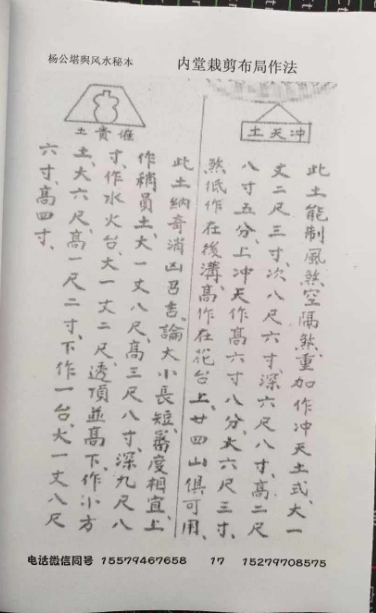 杨公堪舆风水秘本
内堂栽剪布局作法
冲天土
此土能制風煞空隔煞、重加作冲天土式、大一
丈二尺三寸、次八尺六寸、深六尺八寸、高二尺
八寸五分、上冲天作高六寸八分、大六尺三寸、
煞低作在後溝、高作在花台上、廿四山俱可用、
催貴土
此土納奇消凶召吉、論大小長短、審度相宜、上
作稍員土、大一丈八尺、高三尺八寸、深九尺八
寸、作水火台、大一丈二尺、透頂並高下、作小方
土、大六尺、高一尺二寸、下作一台、大一丈八尺
六寸、高四寸、
电话微信同号 15579467658 17 15279708575